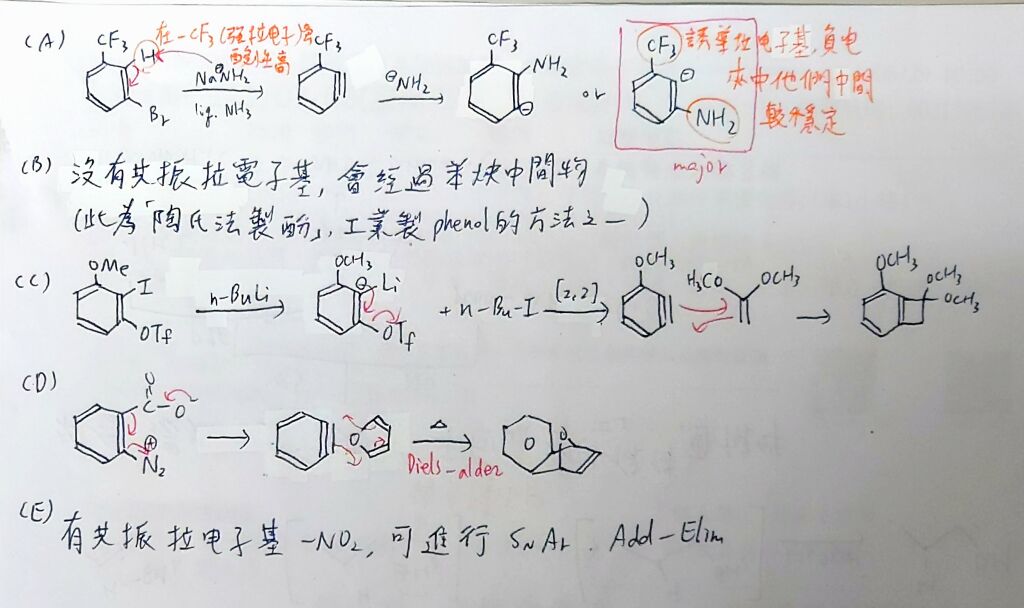 (A) CF₃ H 在-CF₃(強拉电子)旁 酸性高
Br NaNH₂ liq. NH₃ CF₃ ⊖NH₂ CF₃ NH₂ ⊖ or CF₃ ⊖ NH₂ major
誘導拉电子基,負电
夾中他們中間
較穩定
(B) 沒有共振拉電子基, 會經過苯炔中間物
(此為「陶氏法製酚」, 工業製 phenol的方法之一)
(C) OMe I OTf n-BuLi OCH₃ ⊖ Li OTf + n-Bu-I [2,2] OCH₃ H₃CO OCH₃ OCH₃ OCH₃ OCH₃
(D) O C-O⁻ ⊕ N₂ O △ Diels-alder O O
(E) 有共振拉电子基 -NO₂, 可進行 SNAr. Add-Elim